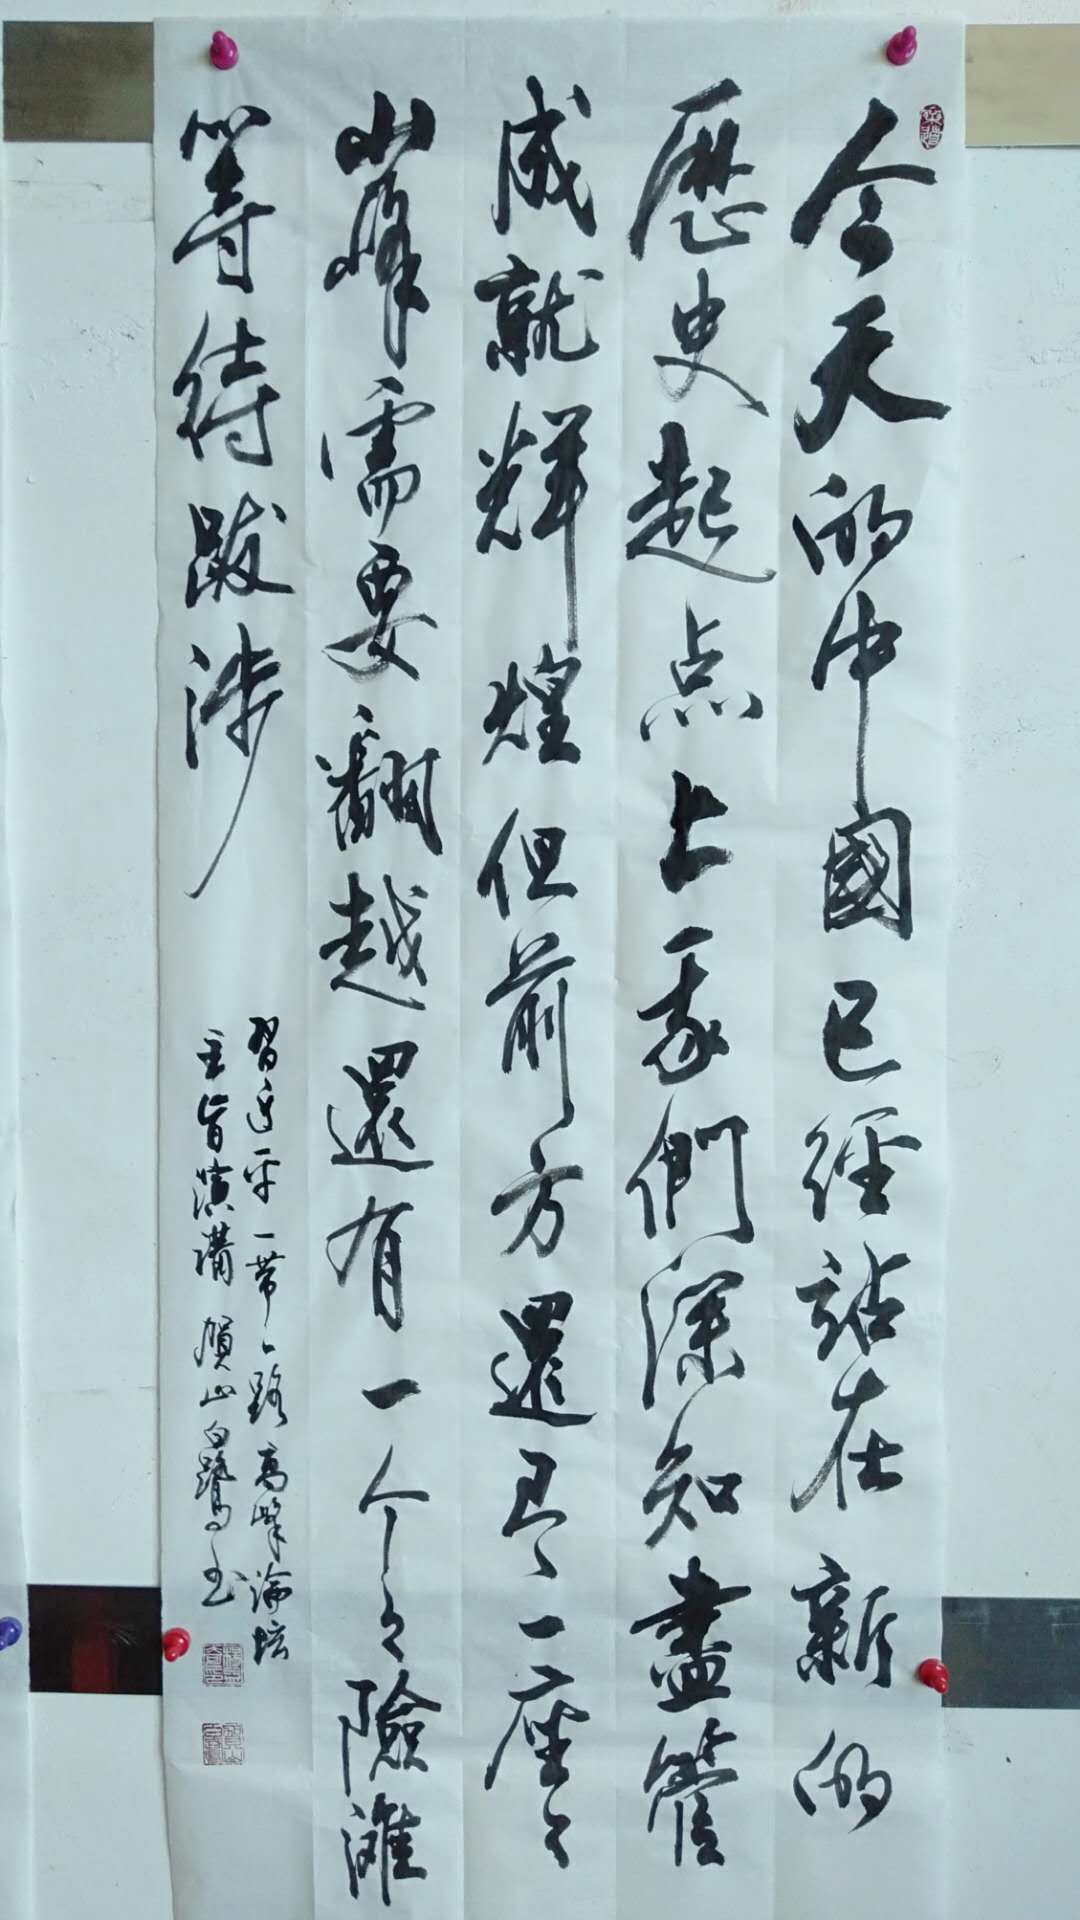 今天的中國已經站在新的
歷史起点上我們深知盡管
成就輝煌但前方還有一座々
山峰需要翻越還有一个々險灘
等待跋涉
習近平一帶一路高峰論壇
主旨演講 賀山白鷺書